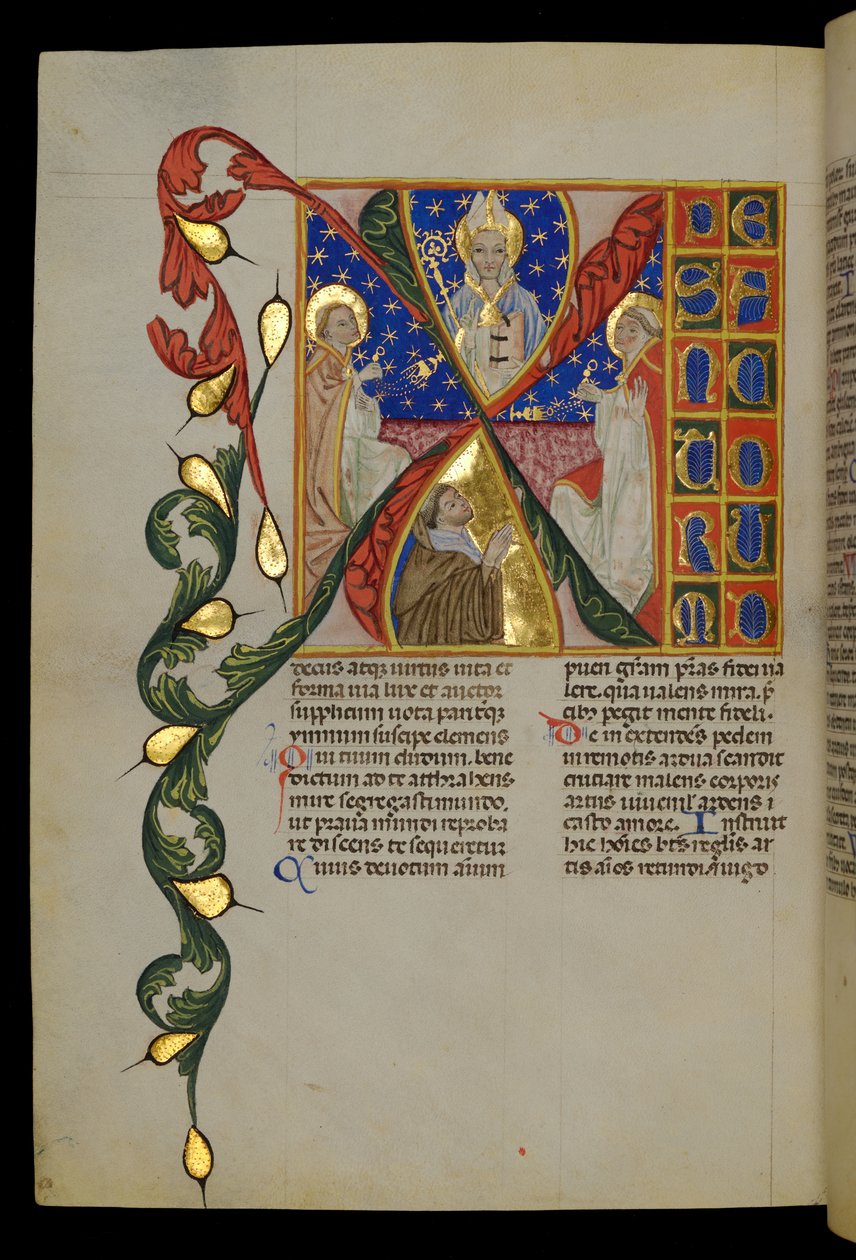 X PE
SA
NC
TO
RU
M D
decus atqꝫ uirtus uita et
forma uia lux et auctor
supplicum uota paritqꝫ
ymnum suscipe clemens
Qui tuum dudum. bene
dictum ad te attrahens
mire segregasti mundo.
ut praua mundi reproba
re discens te sequeretur
Cuius deuotum aīum
puen gr̄am p̄ras fidei ua
lere, qua ualens mira. p̄
cibꝫ pegit mente fideli.
De in extendēs pedem
in remotis ardua scandit
cruciare malens corporis
artus iuuenil ardens i
casto amore. Instruit
hic hōies bt̄s regl̄is ar
tis aīos retundi q̄ uigo